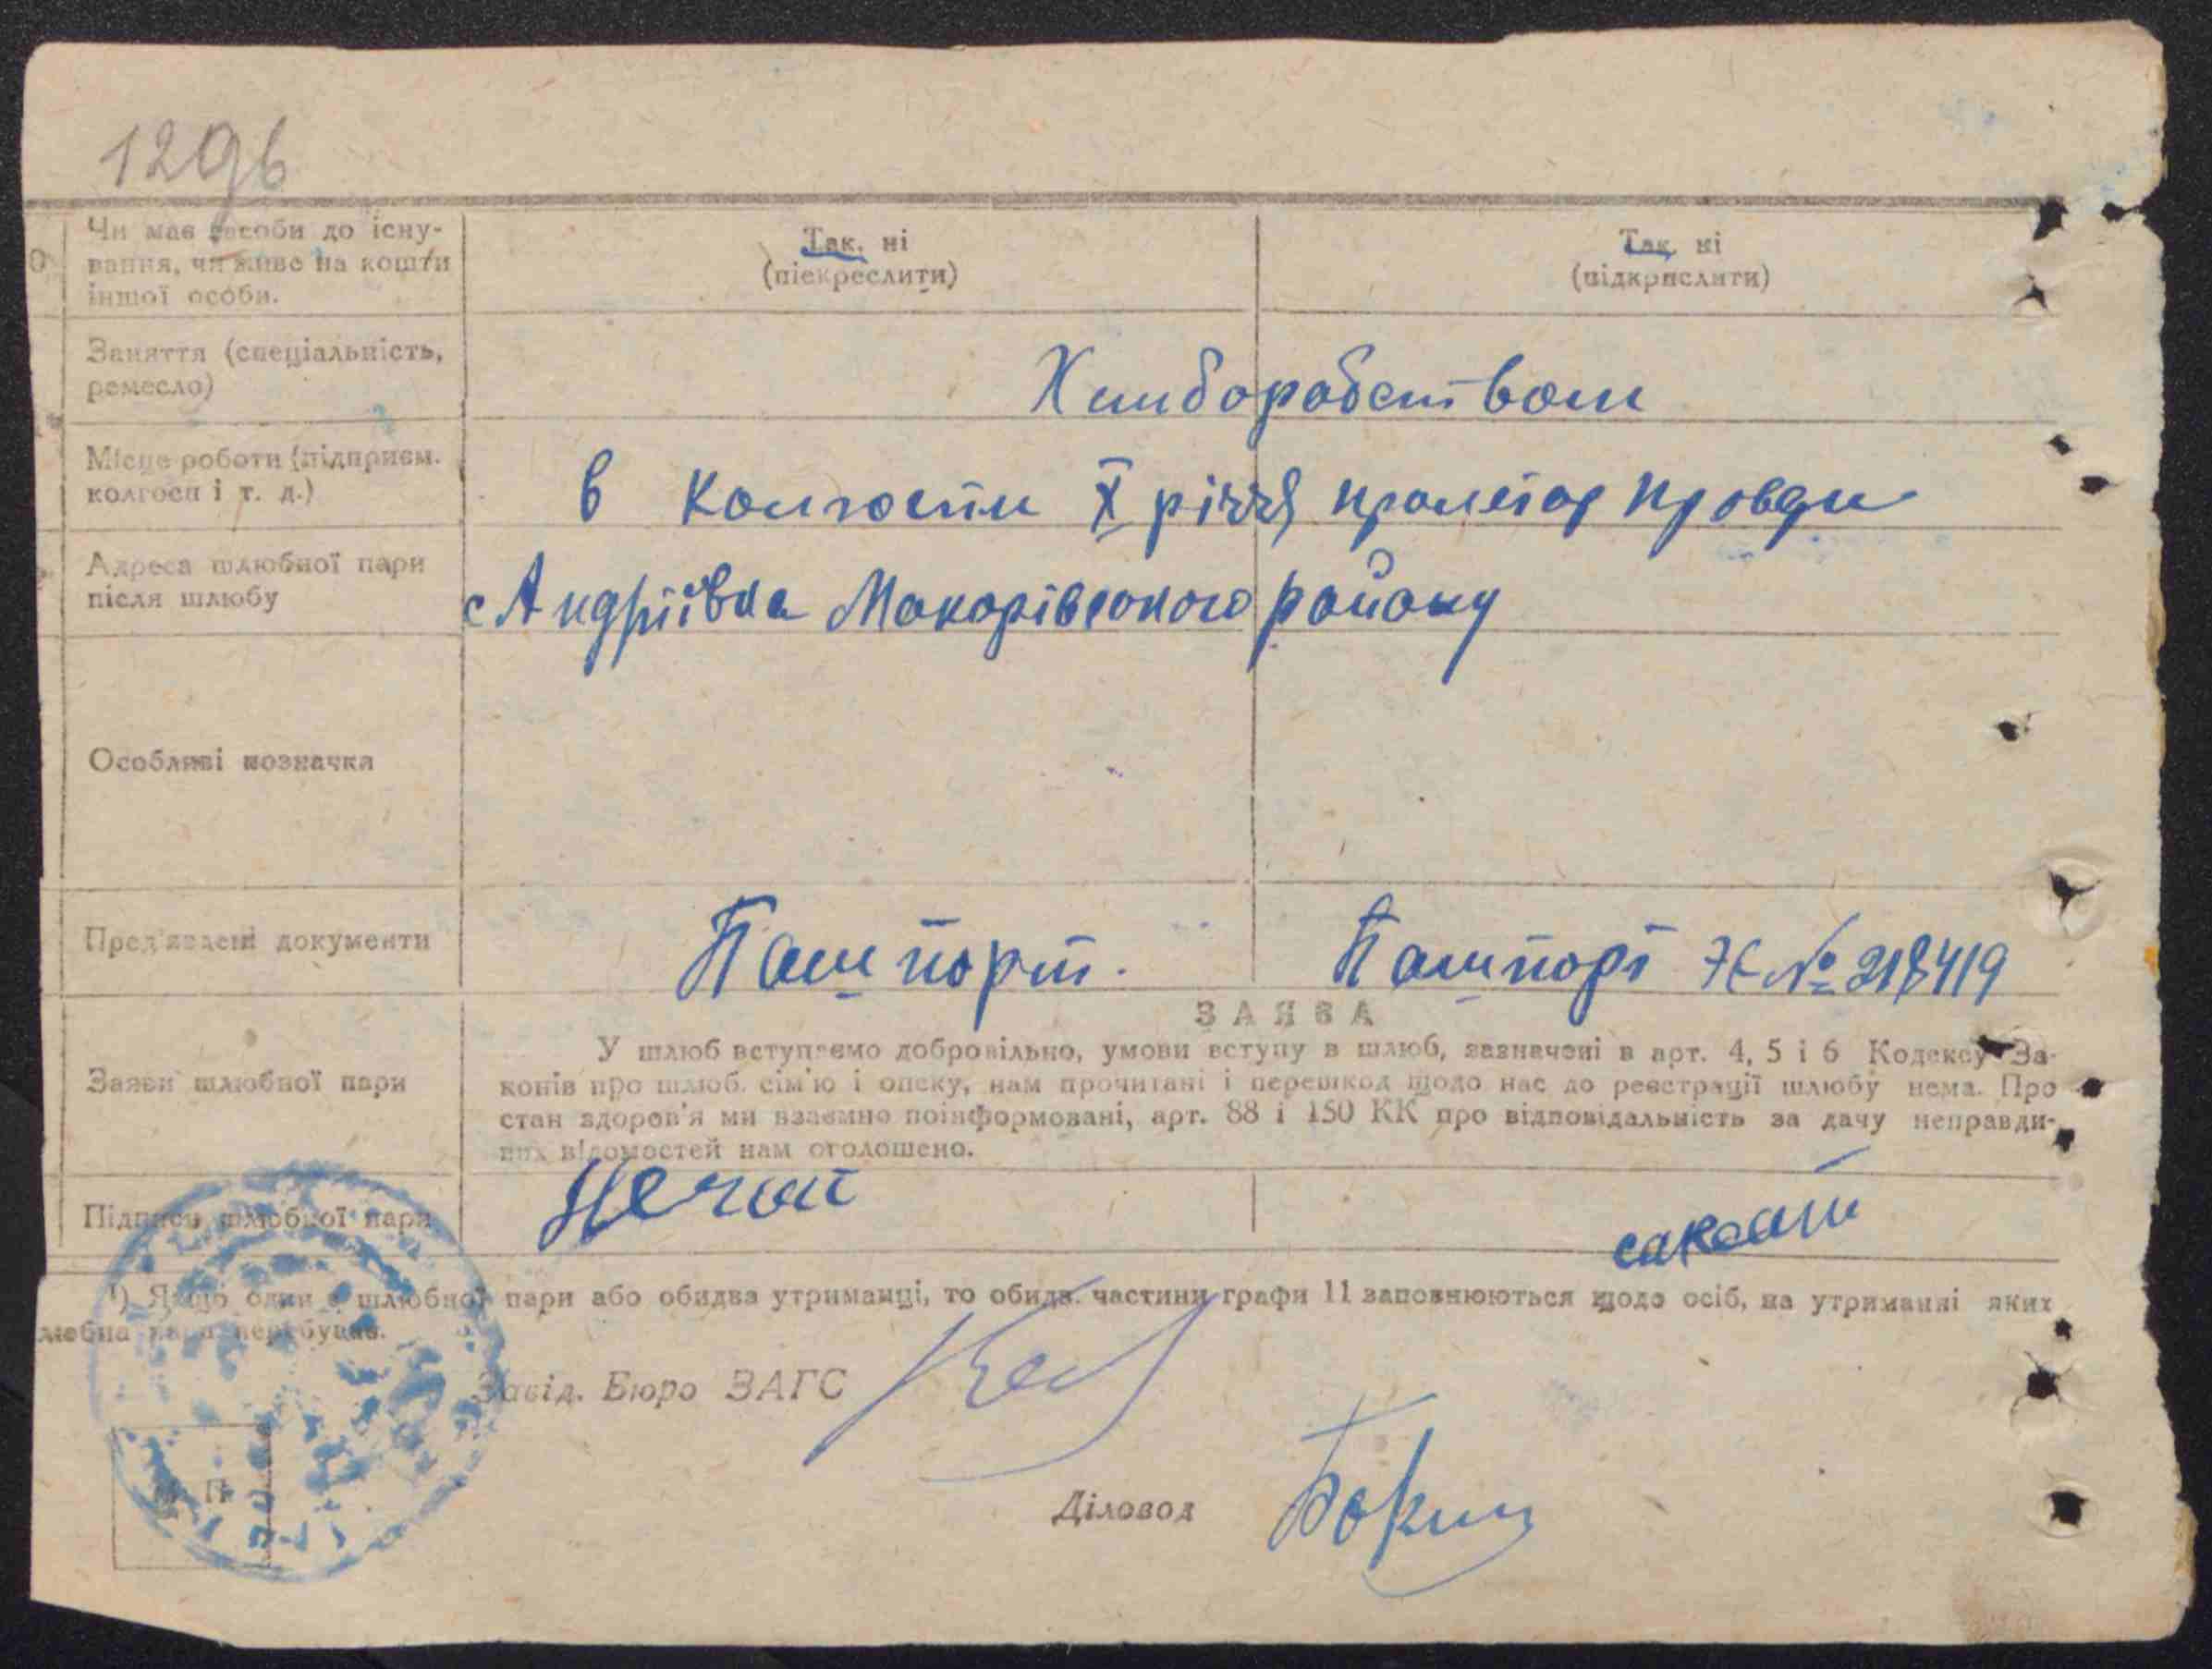 129б
Чи має засоби до існу-
вання, чи живе на кошти
іншої особи.
Так, ні
(піекреслити)
Так, ні
(підкрислити)
Заняття (спеціальність,
ремесло)
Хлиборобством
Місце роботи (підприєм.
колгосп і т. д.)
в Колгоспи Х річчя пролетар провди
Адреса шлюбної пари
після шлюбу
с Андріївка Макарівського району
Особливі позначки
Пред'явлені документи
Пашпорт.
Пашпорт Ж № 218419
ЗАЯВА
Заяви шлюбної пари
У шлюб вступаємо добровільно, умови вступу в шлюб, зазначені в арт. 4, 5 і 6 Кодексу За-
конів про шлюб, сім'ю і опеку, нам прочитані і перешкод щодо нас до реєстрації шлюбу нема. Про
стан здоров'я ми взаємно поінформовані, арт. 88 і 150 КК про відповідальність за дачу неправди-
вих відомостей нам оголошено.
Підписи шлюбної пари
Нечай
¹) Якщо один з шлюбної пари або обидва утриманці, то обидв. частини графи 11 заповнюються щодо осіб, на утриманні яких
любна пара перебуває.
Завід. Бюро ЗАГС
Діловод
М П